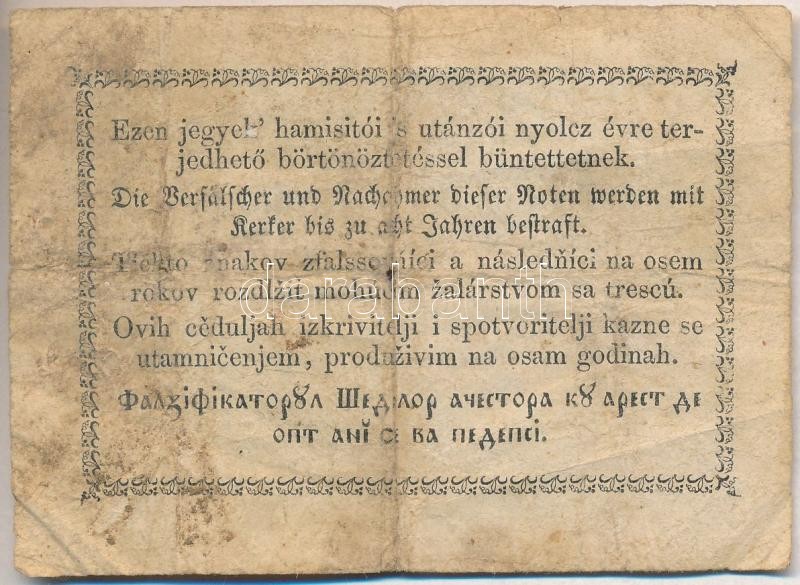 Ezen jegyek' hamisitói 's utánzói nyolcz évre ter-
jedhető börtönöztetéssel büntettetnek.
Die Verfälscher und Nachahmer dieser Noten werden mit
Kerker bis zu acht Jahren bestraft.
Tichto znakov zfalssovníci a následňíci na osem
rokov rozdlžit mohucím žalárstvom sa trescú.
darabanth
Ovih cěduljah izkrivitelji i spotvoritelji kazne se
utamničenjem, produživim na osam godinah.
Фалꙁіфікаторꙋл Шеділор ачестора кꙋ арест де
опт анĭ се ва педепсі.